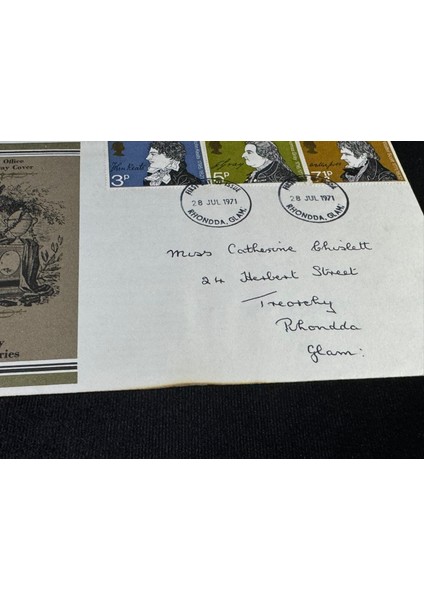 Office
ay Cover
ries
John Keats
3P
T Gray
5P
Walter Scott
7½P
28 JUL 1971
RHONDDA, GLAM.
28 JUL 1971
RHONDDA, GLAM.
Miss Catherine Chislett
24 Herbert Street
Treorchy
Rhondda
Glam: